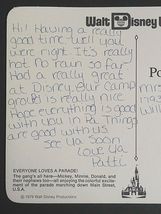 Walt Disney
Hi! Having a really
good time. Well you
were right It's really
not no snow so far
Had a really great
at Disney. Our Camp
group is really nice
Hope everything is good
with you in Pa. Things
are good with us.
see Ya soon
Love Ya
Patti
Po
EVERYONE LOVES A PARADE!
The gang's all here—Mickey, Minnie, Donald, and
their nephews too—all enjoying the colorful excite-
ment of the parade marching down Main Street,
U.S.A.
© 1979 Walt Disney Productions